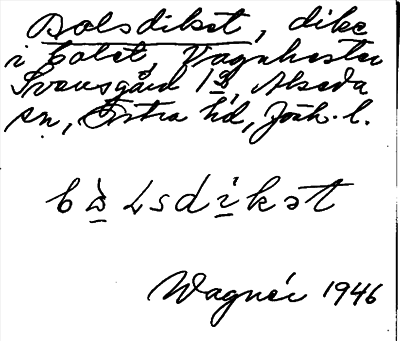 Bolsdiket, dike
i Bolet, Vagnhester
Svensgård 1³, Alseda
sn, Östra hd, Jönk. l.
bò̱lsdi̱kət
Wagnér 1946